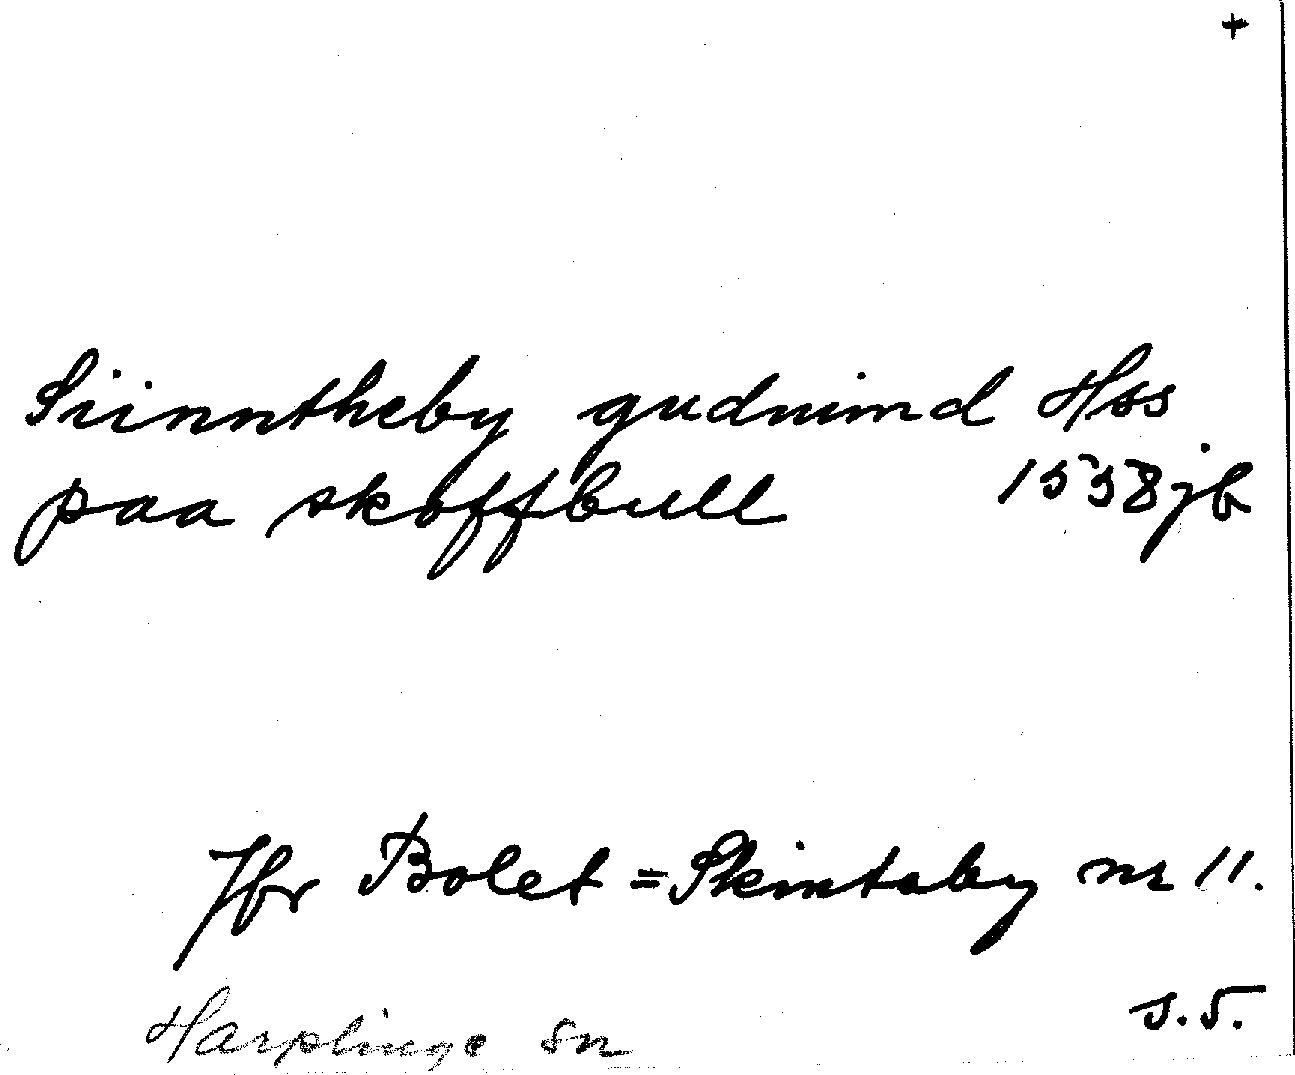 +
Siinntheby gudmund Hss
paa skoffbull 1538 jb
Jfr Bolet = Skintaby nr 11.
s. 5.
Harplinge sn